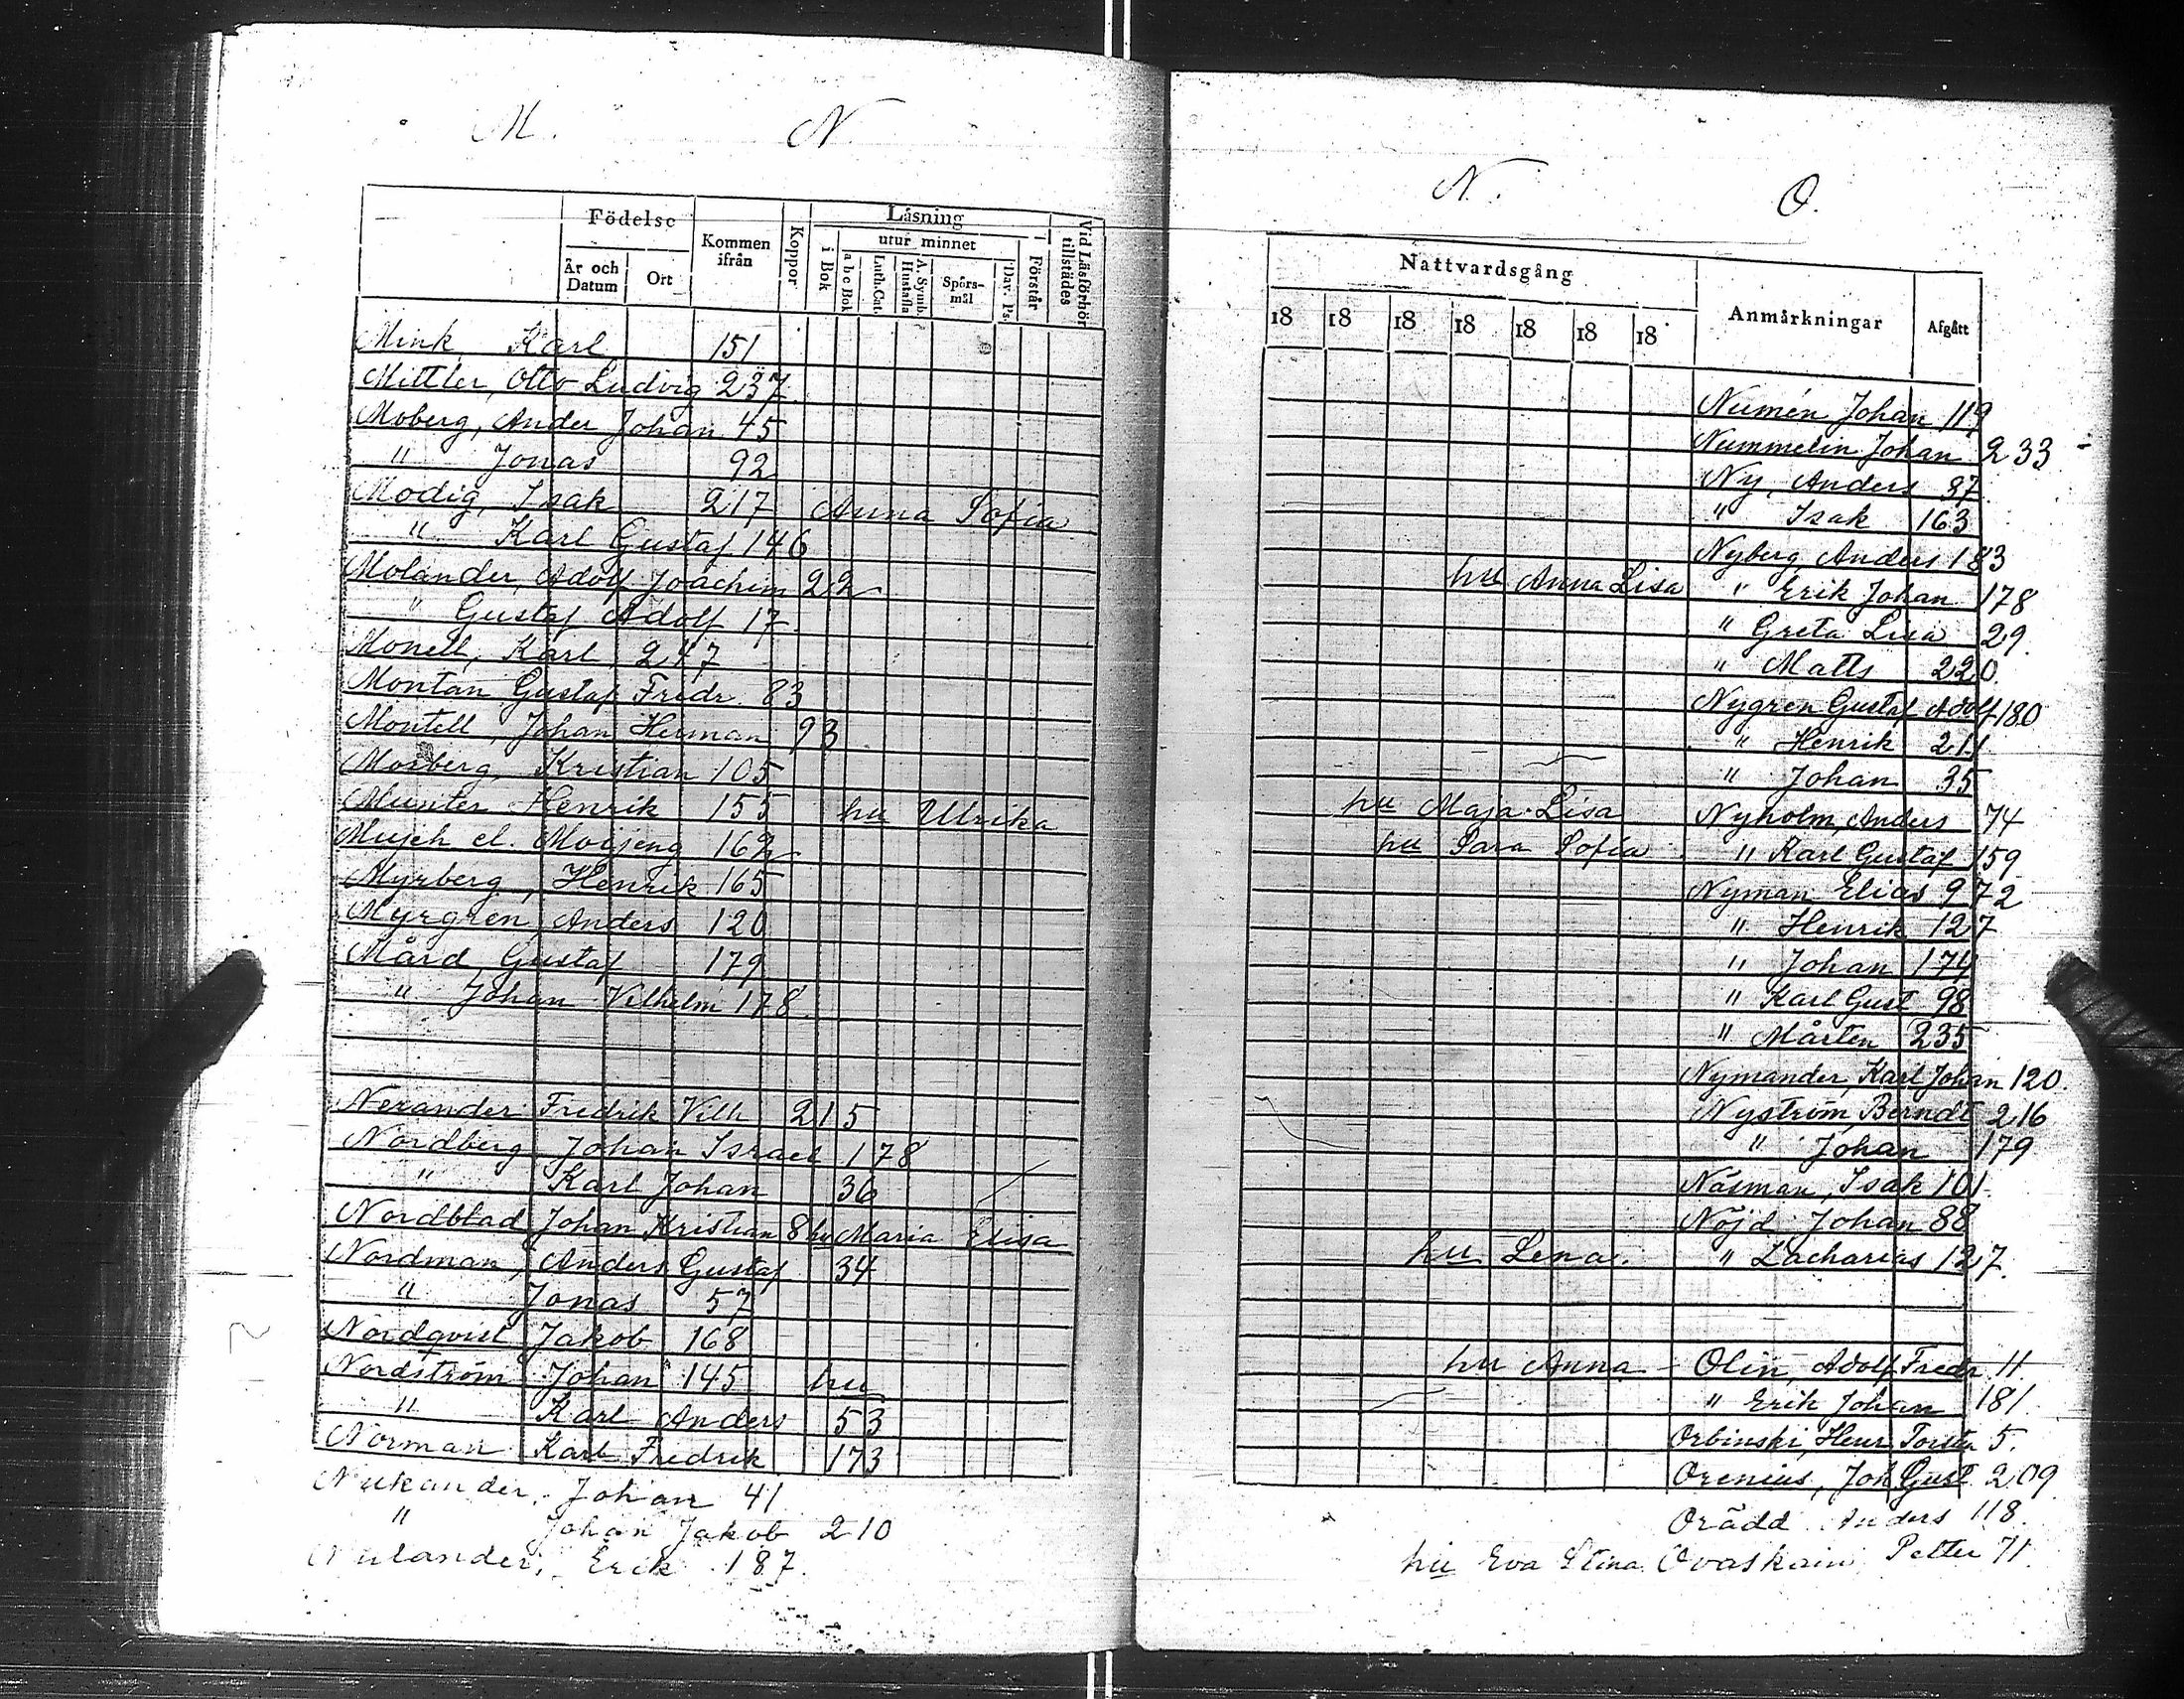 M. N.
Födelse
År och Datum
Ort
Kommen ifrån
Koppor
Läsning
i Bok
utur minnet
a b c Bok
Luth. Cat.
A. Symb. Hustafla
Spörs-mål
Dav. Ps.
Förstår
Vid Läsförhör tillstädes
Mink Karl 151
Mittler, Otto Ludvig 237
Moberg, Ander Johan 45
" Jonas 92
Modig, Isak 217 Anna Sofia
" Karl Gustaf 146
Molander, Adolf Joachim 22
" Gustaf Adolf 17
Monell, Karl 247
Montan Gustaf Fredr. 83
Montell, Johan Herman 93
Mosberg, Kristian 105
Munter Henrik 155 hu Ulrika
Mujeh el. Moijeng 162
Myrberg, Henrik 165
Myrgren, Anders 120
Mård, Gustaf 179
" Johan Vilhelm 178
Nerander Fredrik Vilh 215
Nordberg Johan Israel 178
" Karl Johan 36
Nordblad Johan Kristian 8 hu Maria Elisa
Nordman, Anders Gustaf 34
" Jonas 57
Nordqvist Jakob 168
Nordström Johan 145 hu
" Karl Anders 53
Norman Karl Fredrik 173
Nukander, Johan 41
" Johan Jakob 210
Nulander, Erik 187.
N. O.
Nattvardsgång
18 18 18 18 18 18 18
Anmärkningar
Afgått
Numén Johan 119
Nummelin Johan 233
Ny, Anders 37
" Isak 163
Nyberg, Anders 183
hu Anna Lisa " Erik Johan 178
" Greta Lisa 29.
" Matts 220
Nygren Gustaf Adolf 180
" Henrik 211
" Johan 35
hu Maja Lisa Nyholm, Anders 74
hu Sara Sofia " Karl Gustaf 159
Nyman Elias 972
" Henrik 127
" Johan 174
" Karl Gust 98
" Mårten 235
Nymander, Karl Johan 120.
Nyström, Berndt 216
" Johan 179
Näsman, Isak 101
Nöjd Johan 88
hu Lena. " Zacharias 127.
hu Anna - Olin, Adolf Fredr 11.
" Erik Johan 181
Orbinski, Henr. Torsten 5.
Orenius, Joh Gust 209
Orädd Anders 118.
hu Eva Stina Ovaskain Petter 71.